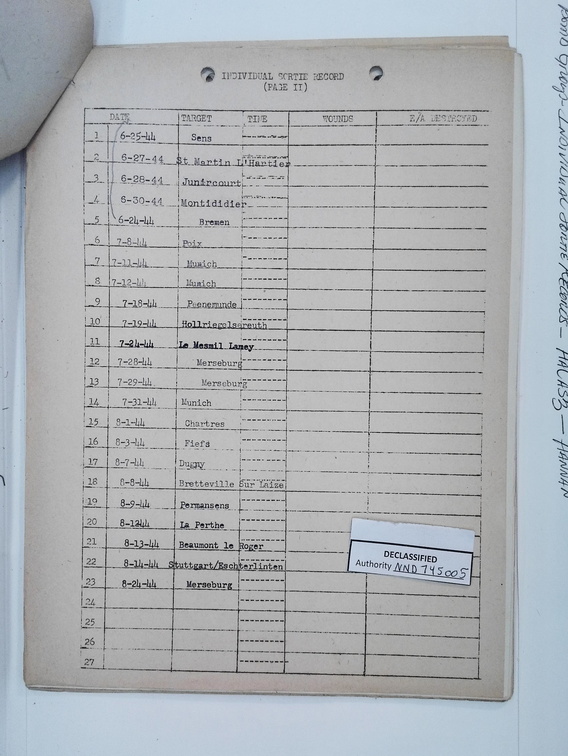 INDIVIDUAL SORTIE RECORD
(PAGE II)
DATE TARGET TIME WOUNDS E/A DESTROYED
1 6-25-44 Sens
2 6-27-44 St Martin L'Hartier
3 6-28-44 Junircourt
4 6-30-44 Montididier
5 6-24-44 Bremen
6 7-8-44 Poix
7 7-11-44 Munich
8 7-12-44 Munich
9 7-18-44 Peenemunde
10 7-19-44 Hollriegelsgreuth
11 7-24-44 Le Mesnil Lamey
12 7-28-44 Merseburg
13 7-29-44 Merseburg
14 7-31-44 Munich
15 8-1-44 Chartres
16 8-3-44 Fiefs
17 8-7-44 Dugny
18 8-8-44 Bretteville Sur Laize
19 8-9-44 Permansens
20 8-1244 La Perthe
21 8-13-44 Beaumont le Roger
22 8-14-44 Stuttgart/Eschterlinten
23 8-24-44 Merseburg
24
25
26
27
DECLASSIFIED
Authority NND 745005
Bomb Group - Individual Sortie Records - HALASZ - HANNAN